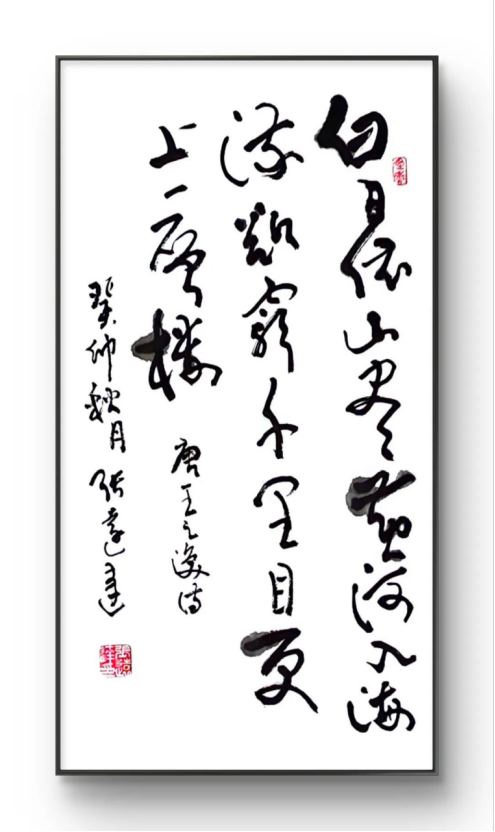 白日依山尽黄河入海
流欲穷千里目更
上一层楼
唐王之涣诗
癸卯秋月张远達